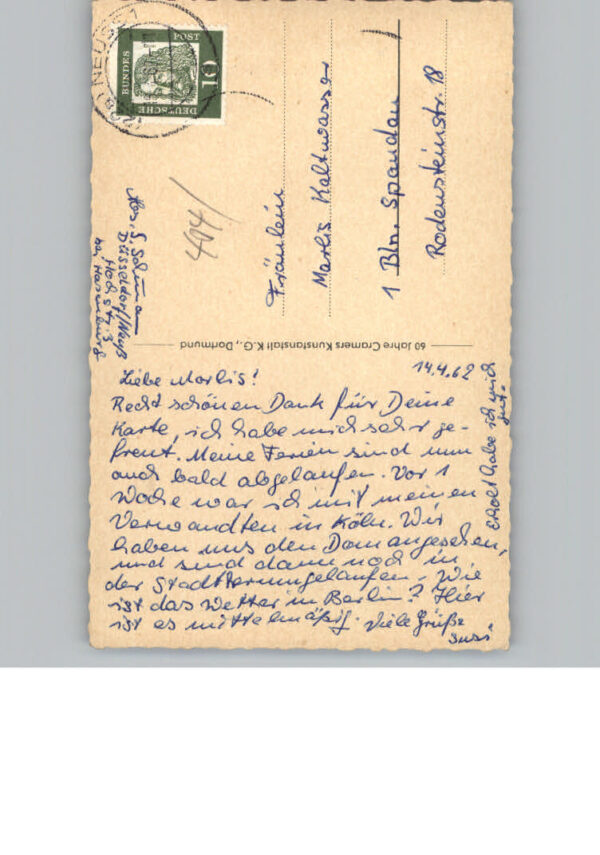 NEUSS 1
DEUTSCHE
BUNDES
POST
10
404/
Abs. S.
Düsseldorf/Neuß
Hochstr. 3
bei Hasenburg
Fräulein
Marlis Kaltwasser
1 Bln. Spandau
Rodensteinstr. 18
60 Jahre Cramers Kunstanstalt K.G., Dortmund
14.4.62
Liebe Marlis!
Recht schönen Dank für Deine
Karte, ich habe mich sehr ge-
freut. Meine Ferien sind nun
auch bald abgelaufen. Vor 1
Woche war ich mit meinen
Verwandten in Köln. Wir
haben uns den Dom angesehen,
und sind dann noch in
der Stadt herumgelaufen. Wie
ist das Wetter in Berlin? Hier
ist es mittelmäßig. Viele Grüße
Susi
Erholt habe ich mich
gut.